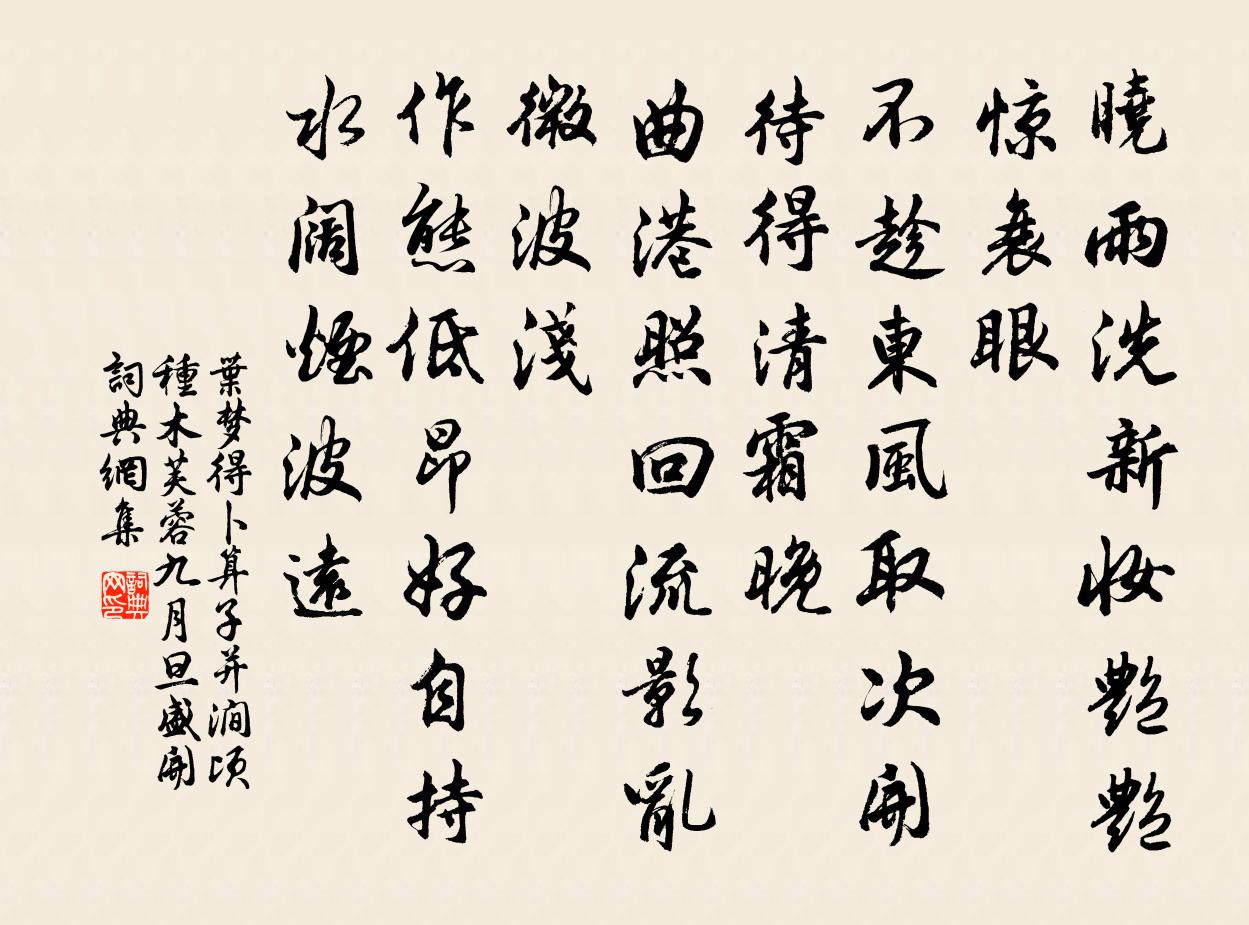 曉雨洗新妝艷艷
惊衰眼
不趁東風取次開
待得清霜晚
曲港照回流影亂
微波淺
作態低昂好自持
水闊煙波遠
葉梦得卜算子并澗頃
種木芙蓉九月旦盛開
詞典網集
詞典网印